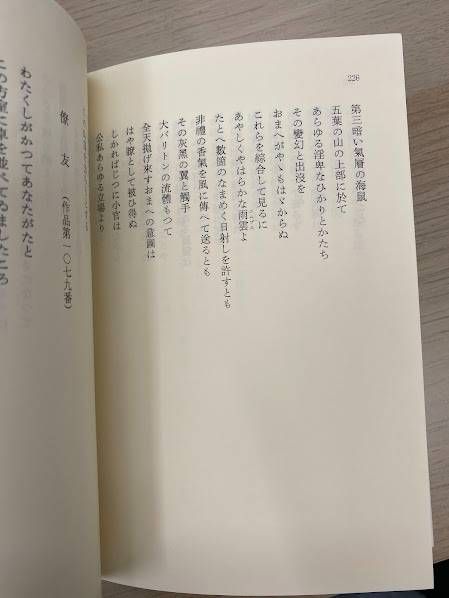 226
第三暗い氣層の海鼠
五葉の山の上部に於て
あらゆる淫卑なひかりとかたち
その變幻と出沒を
おまへがやゝもはゞからぬ
これらを綜合して見るに
あやしくやはらかな雨雲よ
たとへ數箇のなまめく日射しを許すとも
非禮の香氣を風に傳へて送るとも
その灰黑の翼と觸手
大バリトンの流體もつて
全天拋げ來すおまへの意圖は
はや瞭として被ひ得ぬ
しかればじつに小官は
公私あらゆる立場より
僚友
(作品第一〇七九番)
わたくしがかつてあなたがたと
この方室に卓を並べてゐましたころ